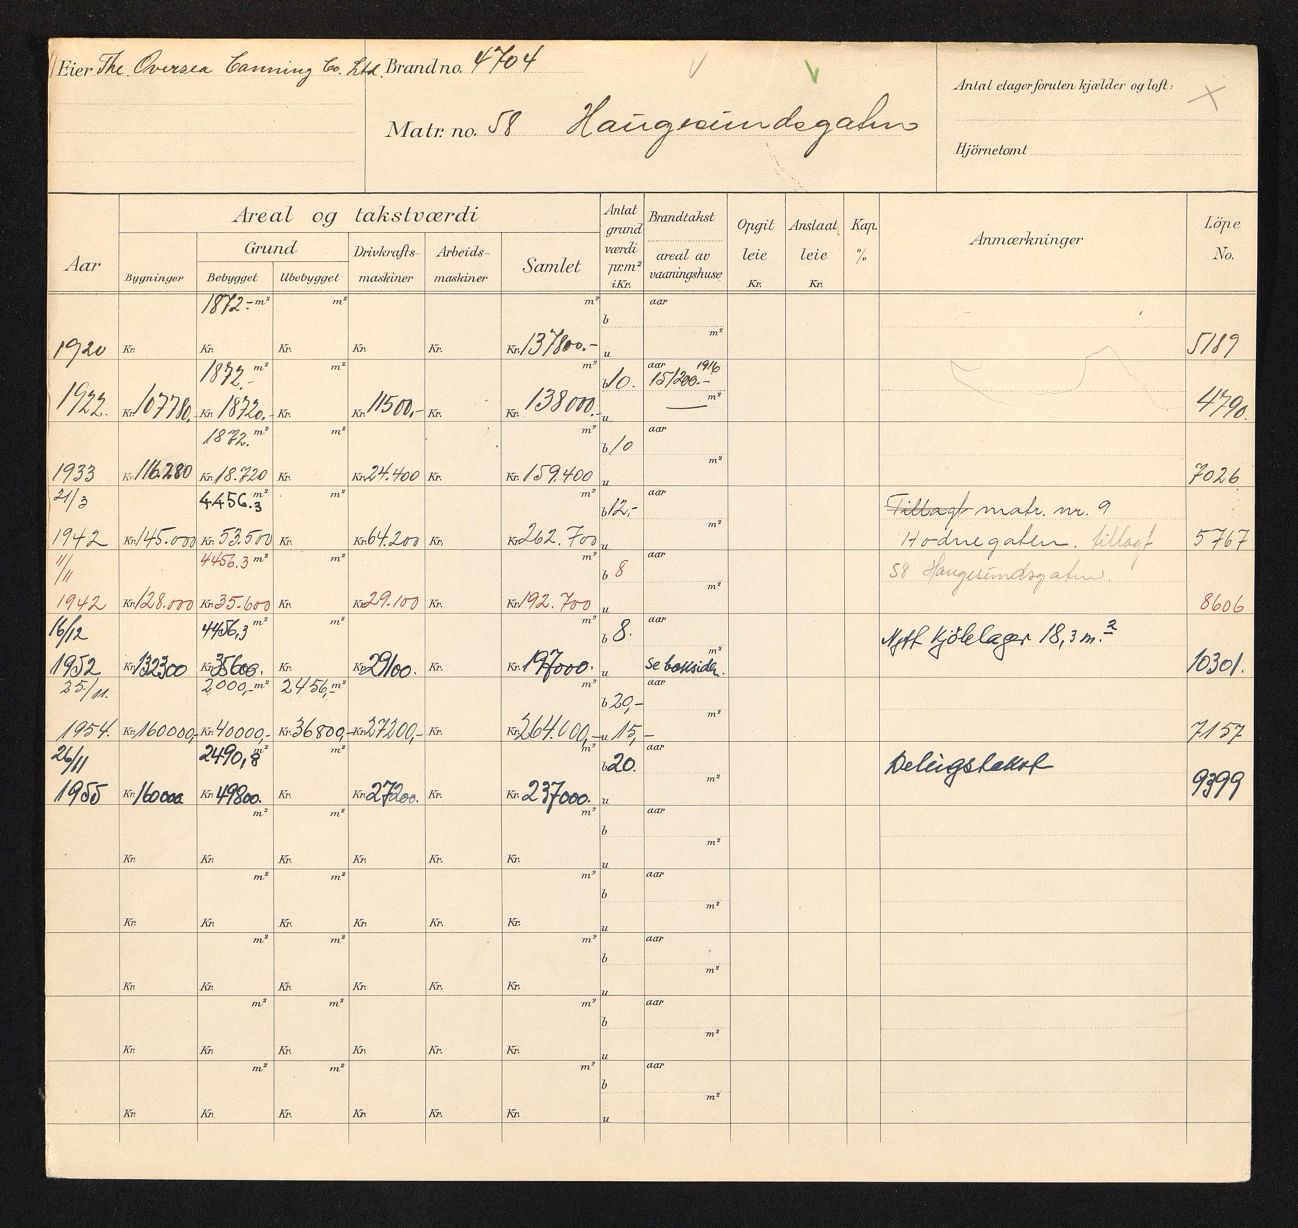 Eier The Oversea Canning Co. Ltd. Brand no. 4704
Matr. no. 58 Haugesundsgaten
Antal etager foruten kjælder og loft:
Hjörnetomt
Aar
Areal og takstværdi
Bygninger
Grund
Bebygget Ubebygget
Drivkrafts-
maskiner
Arbeids-
maskiner
Samlet
Antat
grund
værdi
pr. m²
i Kr.
Brandtakst
areal av
vaaningshuse
Opgit
leie
Kr.
Anslaat
leie
Kr.
Kap.
%
Anmærkninger
Löpe
No.
1872.- m² m² m² b aar
1920 Kr. Kr. Kr. Kr. Kr. Kr. 137800.- u m² 5189
1872.- m² m² m² b 10. aar 1916
151200.-
1922. Kr. 107780,- Kr. 18720,- Kr. Kr. 11500,- Kr. Kr. 138000.- u m² 4790.
1872. m² m² m² b 10 aar
1933 Kr. 116.280 Kr. 18.720 Kr. Kr. 24.400 Kr. Kr. 159.400 u m² 7026
21/3 4456.3 m² m² m² b 12,- aar Tillagt matr. nr. 9
1942 Kr. 145.000 Kr. 53.500 Kr. Kr. 64.200 Kr. Kr. 262.700 u m² Hodnegaten. tillagt 5767
11/11 4456.3 m² m² m² b 8 aar 58 Haugesundsgaten.
1942 Kr. 128.000 Kr. 35.600 Kr. Kr. 29.100 Kr. Kr. 192.700 u m² 8606
16/12 4456,3 m² m² m² b 8. aar Nytt kjölelager 18,3 m.²
1952 Kr. 132300 Kr. 35600. Kr. Kr. 29100. Kr. Kr. 197000. u m² se baksiden. 10301.
25/11. 2000,- m² 2456,- m² m² b 20,- aar
1954. Kr. 160000,- Kr. 40000,- Kr. 36800,- Kr. 27200,- Kr. Kr. 264.000,- u 15,- m² 7157
26/11 2490,8 m² m² b 20. aar Delingstakst
1955 Kr. 160000. Kr. 49800. Kr. Kr. 27200. Kr. Kr. 237000. u m² 9399
m² m² m² b aar
Kr. Kr. Kr. Kr. Kr. Kr. u m²
m² m² m² b aar
Kr. Kr. Kr. Kr. Kr. Kr. u m²
m² m² m² b aar
Kr. Kr. Kr. Kr. Kr. Kr. u m²
m² m² m² b aar
Kr. Kr. Kr. Kr. Kr. Kr. u m²
m² m² m² b aar
Kr. Kr. Kr. Kr. Kr. Kr. u m²